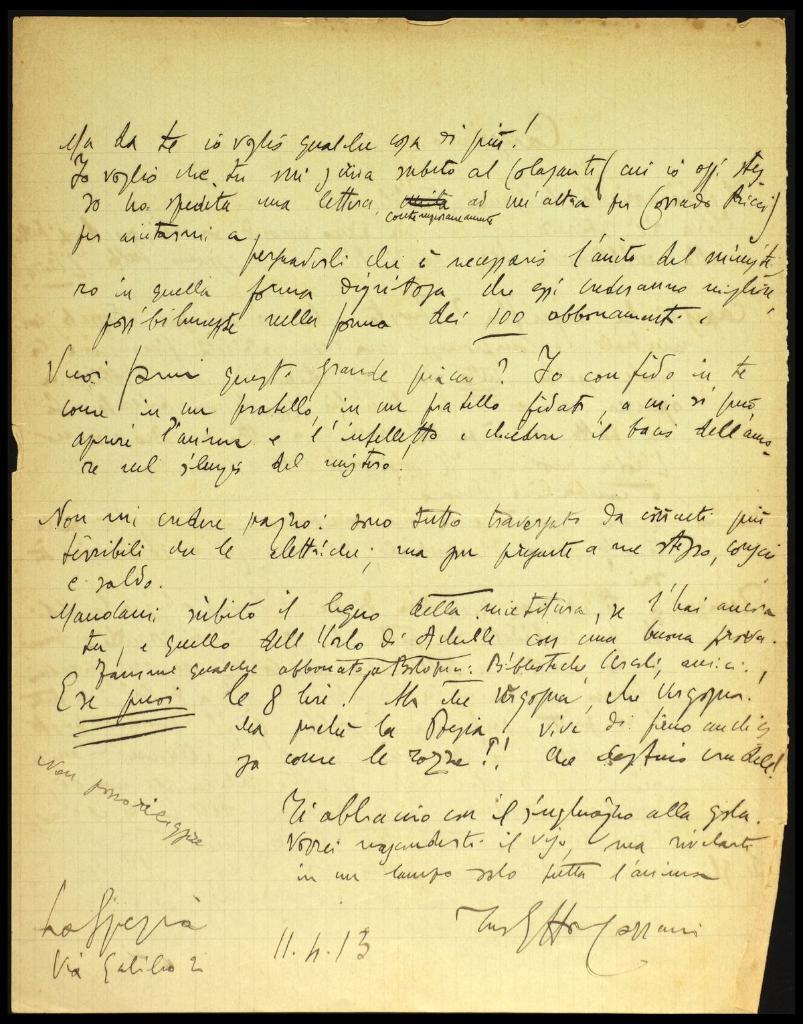 Ma da te io voglio qualche cosa di più!
Io voglio che tu mi scriva subito al Colasanti (cui io oggi stes
so ho spedita una lettera, unita ad un'altra per Corrado Ricci)
contemporaneamente
per aiutarmi a
persuaderli che è necessario l'aiuto del ministe
ro in quella forma dignitosa che essi crederanno migliore,
possibilmente nella forma dei 100 abbonamenti.
Vuoi farmi questo grande piacere? Io confido in te
come in un fratello, in un fratello fidato, a cui si può
aprire l'anima e l'intelletto e chiedere il bacio dell'amo-
re nel silenzio del mistero!
Non mi credere pazzo: sono tutto traversato da correnti più
terribili che le elettriche; ma pur presente a me stesso, conscio
e saldo.
Mandami subito il legno della mietitura, se l'hai ancora
tu, e quello dell'Urlo di Achille con una buona prova.
Fammi qualche abbonato a Bologna: Biblioteche, amici!
E se puoi le 8 lire! Ma che vergogna, che vergogna!
Ma perché la Poesia vive di fieno anch'es
sa come le rozze?! Che destino crudele!
Non posso rileggere
Ti abbraccio con il singhiozzo alla gola.
Vorrei nasconderti il viso, ma rivelarti
in un lampo solo tutta l'anima
La Spezia
Via Galileo 2
11.4.13
Ettore Cozzani